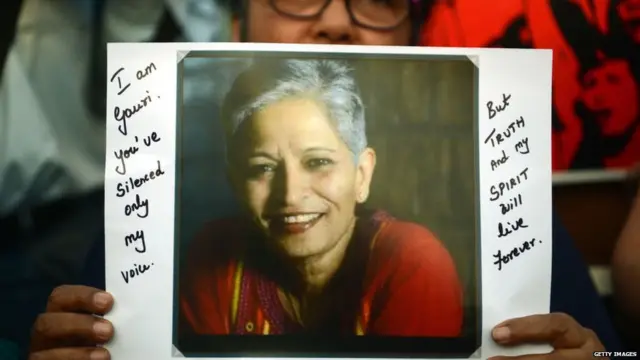 I am
Gauri.
You've
Silenced
only
my
voice.
But
TRUTH
And my
SPIRIT
will
live
Forever.
GETTY IMAGES